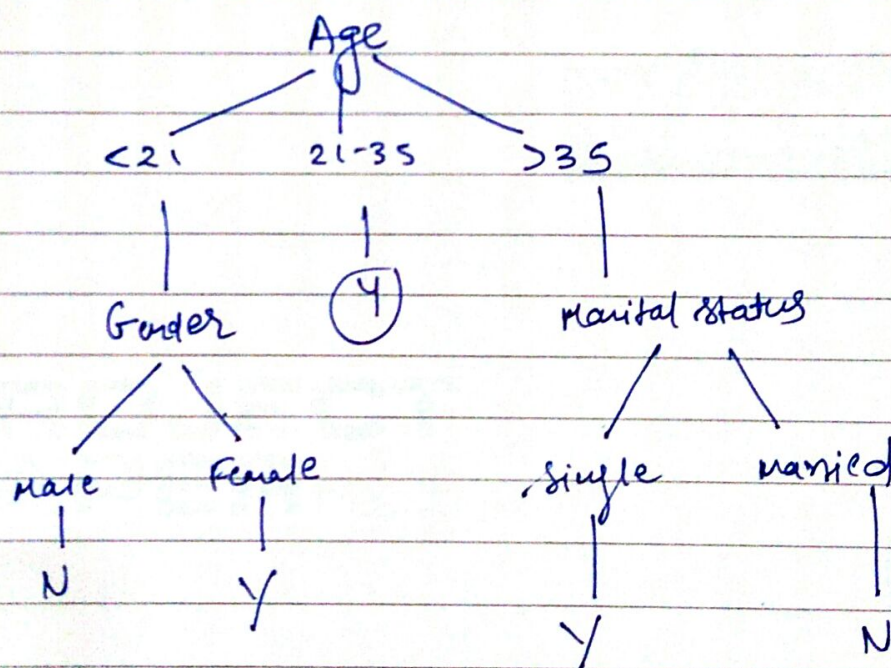 Age
<21 21-35 >35
Gender Y Marital status
Male Female Single Married
N Y Y N